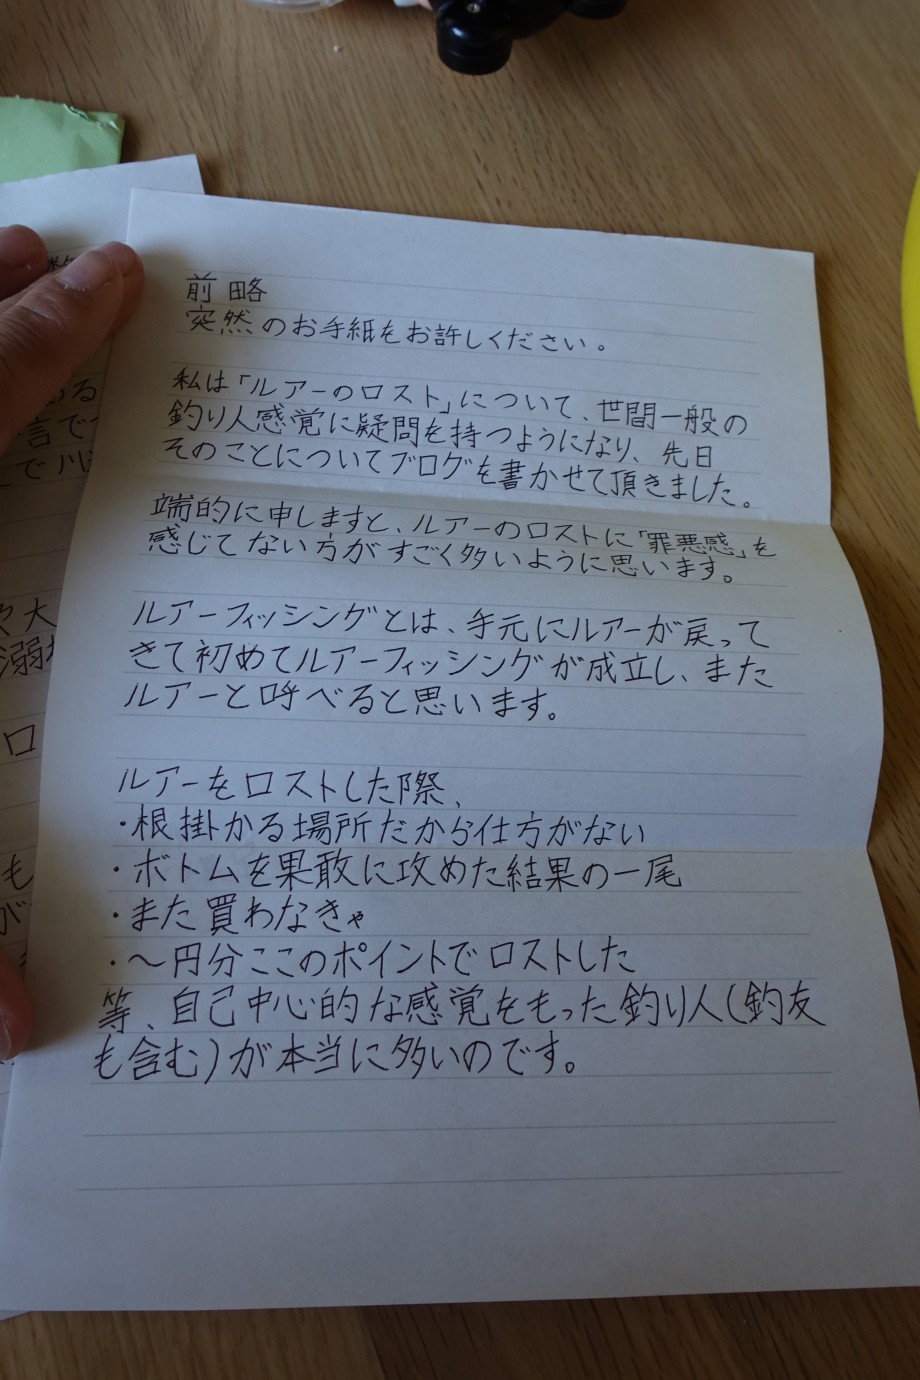 前略
突然のお手紙をお許しください。
私は「ルアーのロスト」について、世間一般の
釣り人感覚に疑問を持つようになり、先日
そのことについてブログを書かせて頂きました。
端的に申しますと、ルアーのロストに「罪悪感」を
感じてない方がすごく多いように思います。
ルアーフィッシングとは、手元にルアーが戻って
きて初めてルアーフィッシングが成立し、また
ルアーと呼べると思います。
ルアーをロストした際、
・根掛かる場所だから仕方がない
・ボトムを果敢に攻めた結果の一尾
・また買わなきゃ
・〜円分ここのポイントでロストした
等、自己中心的な感覚をもった釣り人(釣友
も含む)が本当に多いのです。
る
言で
で
大
溺
ロ
も
が